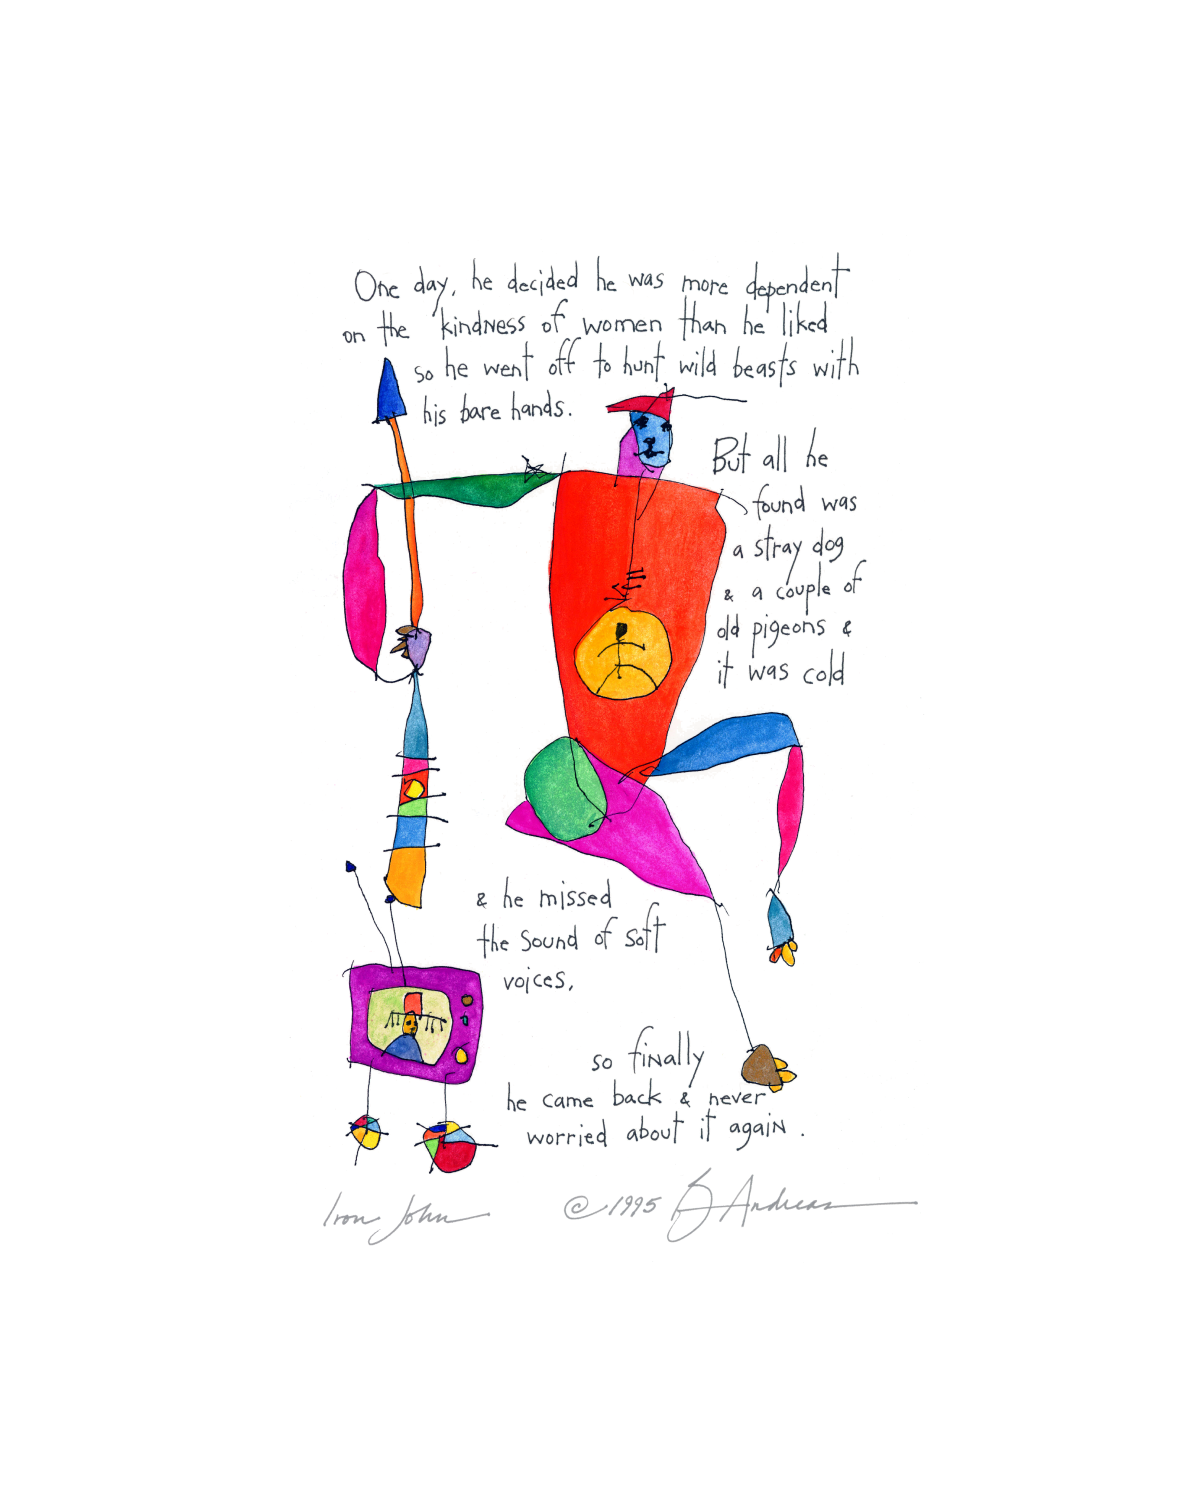 One day, he decided he was more dependent
on the kindness of women than he liked
so he went off to hunt wild beasts with
his bare hands.
But all he
found was
a stray dog
& a couple of
old pigeons &
it was cold
& he missed
the sound of soft
voices,
so finally
he came back & never
worried about it again.
Iron John © 1995 B Andreas